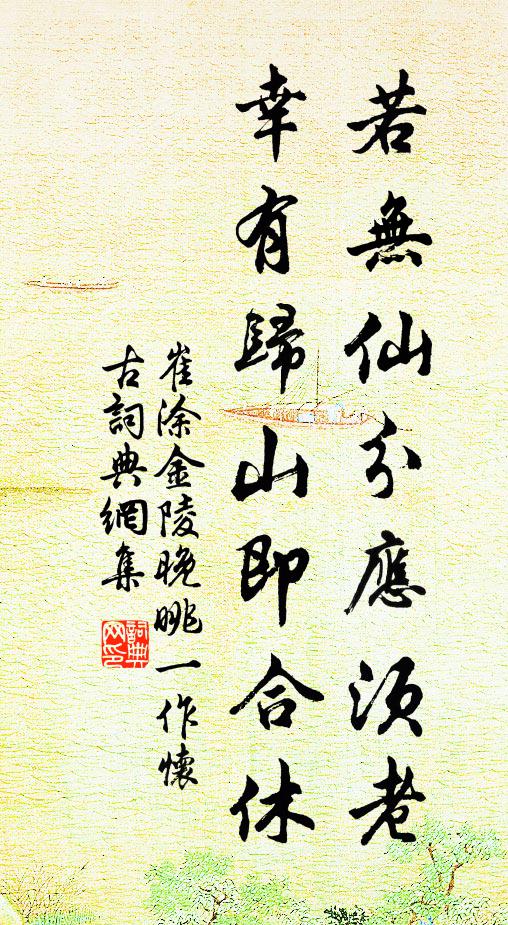 若無仙分應須老
幸有歸山即合休
崔涂金陵晚眺一作懷
古詞典網集
詞典
网印